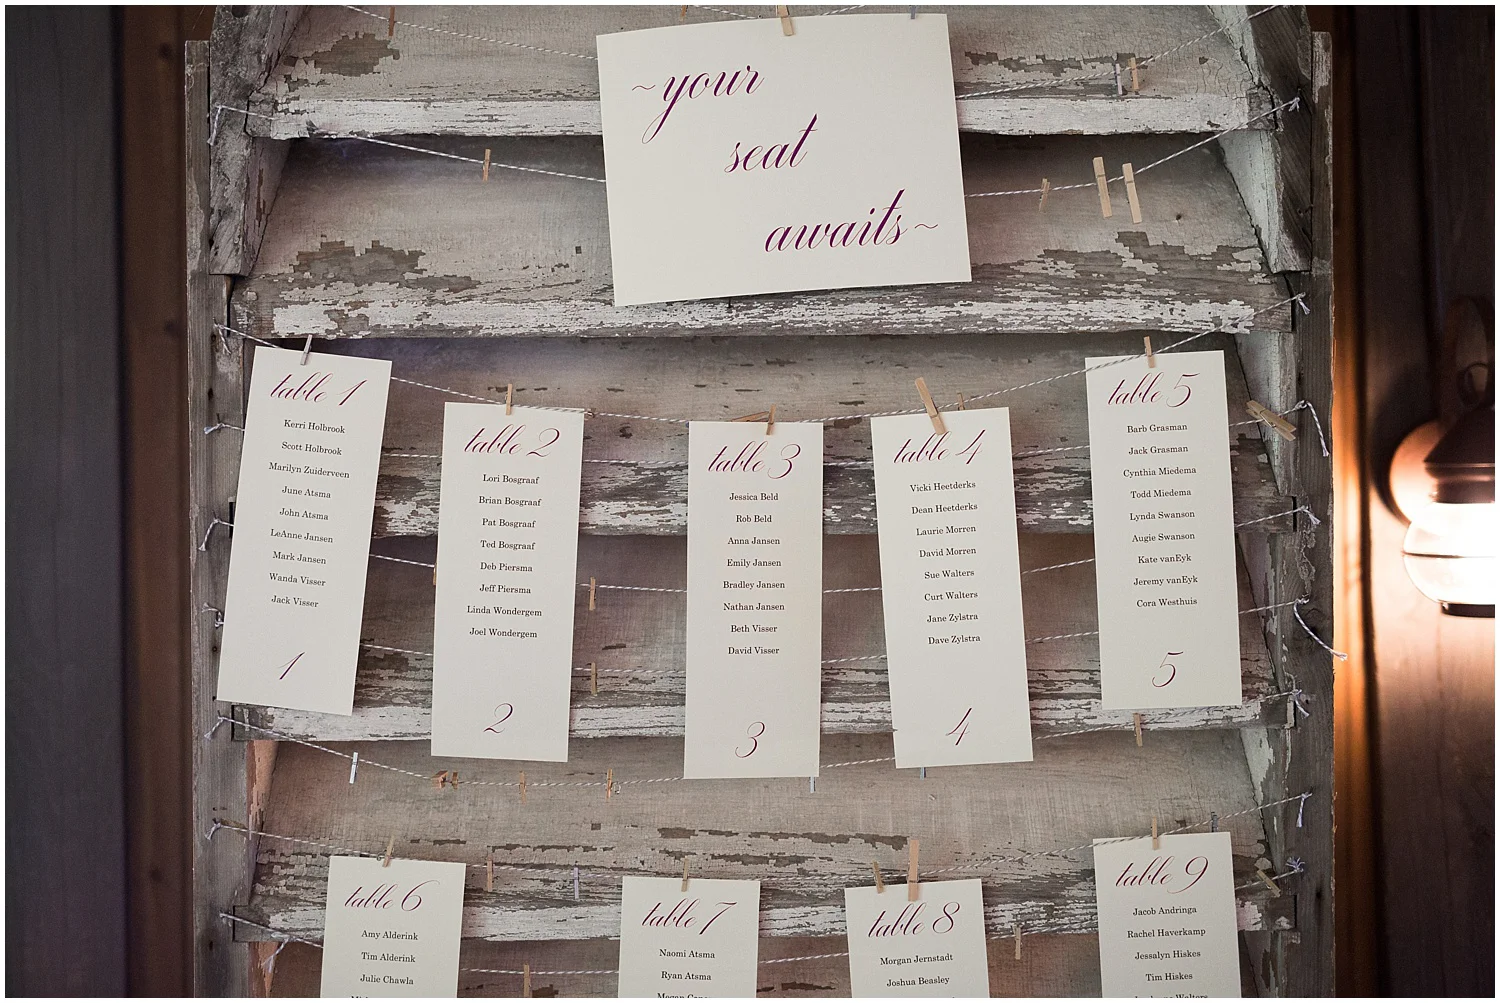 ~your
seat
awaits~
table 1
Kerri Holbrook
Scott Holbrook
Marilyn Zuiderveen
June Atsma
John Atsma
LeAnne Jansen
Mark Jansen
Wanda Visser
Jack Visser
1
table 2
Lori Bosgraaf
Brian Bosgraaf
Pat Bosgraaf
Ted Bosgraaf
Deb Piersma
Jeff Piersma
Linda Wondergem
Joel Wondergem
2
table 3
Jessica Beld
Rob Beld
Anna Jansen
Emily Jansen
Bradley Jansen
Nathan Jansen
Beth Visser
David Visser
3
table 4
Vicki Heetderks
Dean Heetderks
Laurie Morren
David Morren
Sue Walters
Curt Walters
Jane Zylstra
Dave Zylstra
4
table 5
Barb Grasman
Jack Grasman
Cynthia Miedema
Todd Miedema
Lynda Swanson
Augie Swanson
Kate vanEyk
Jeremy vanEyk
Cora Westhuis
5
table 6
Amy Alderink
Tim Alderink
Julie Chawla
table 7
Naomi Atsma
Ryan Atsma
Megan
table 8
Morgan Jernstadt
Joshua Beasley
table 9
Jacob Andringa
Rachel Haverkamp
Jessalyn Hiskes
Tim Hiskes